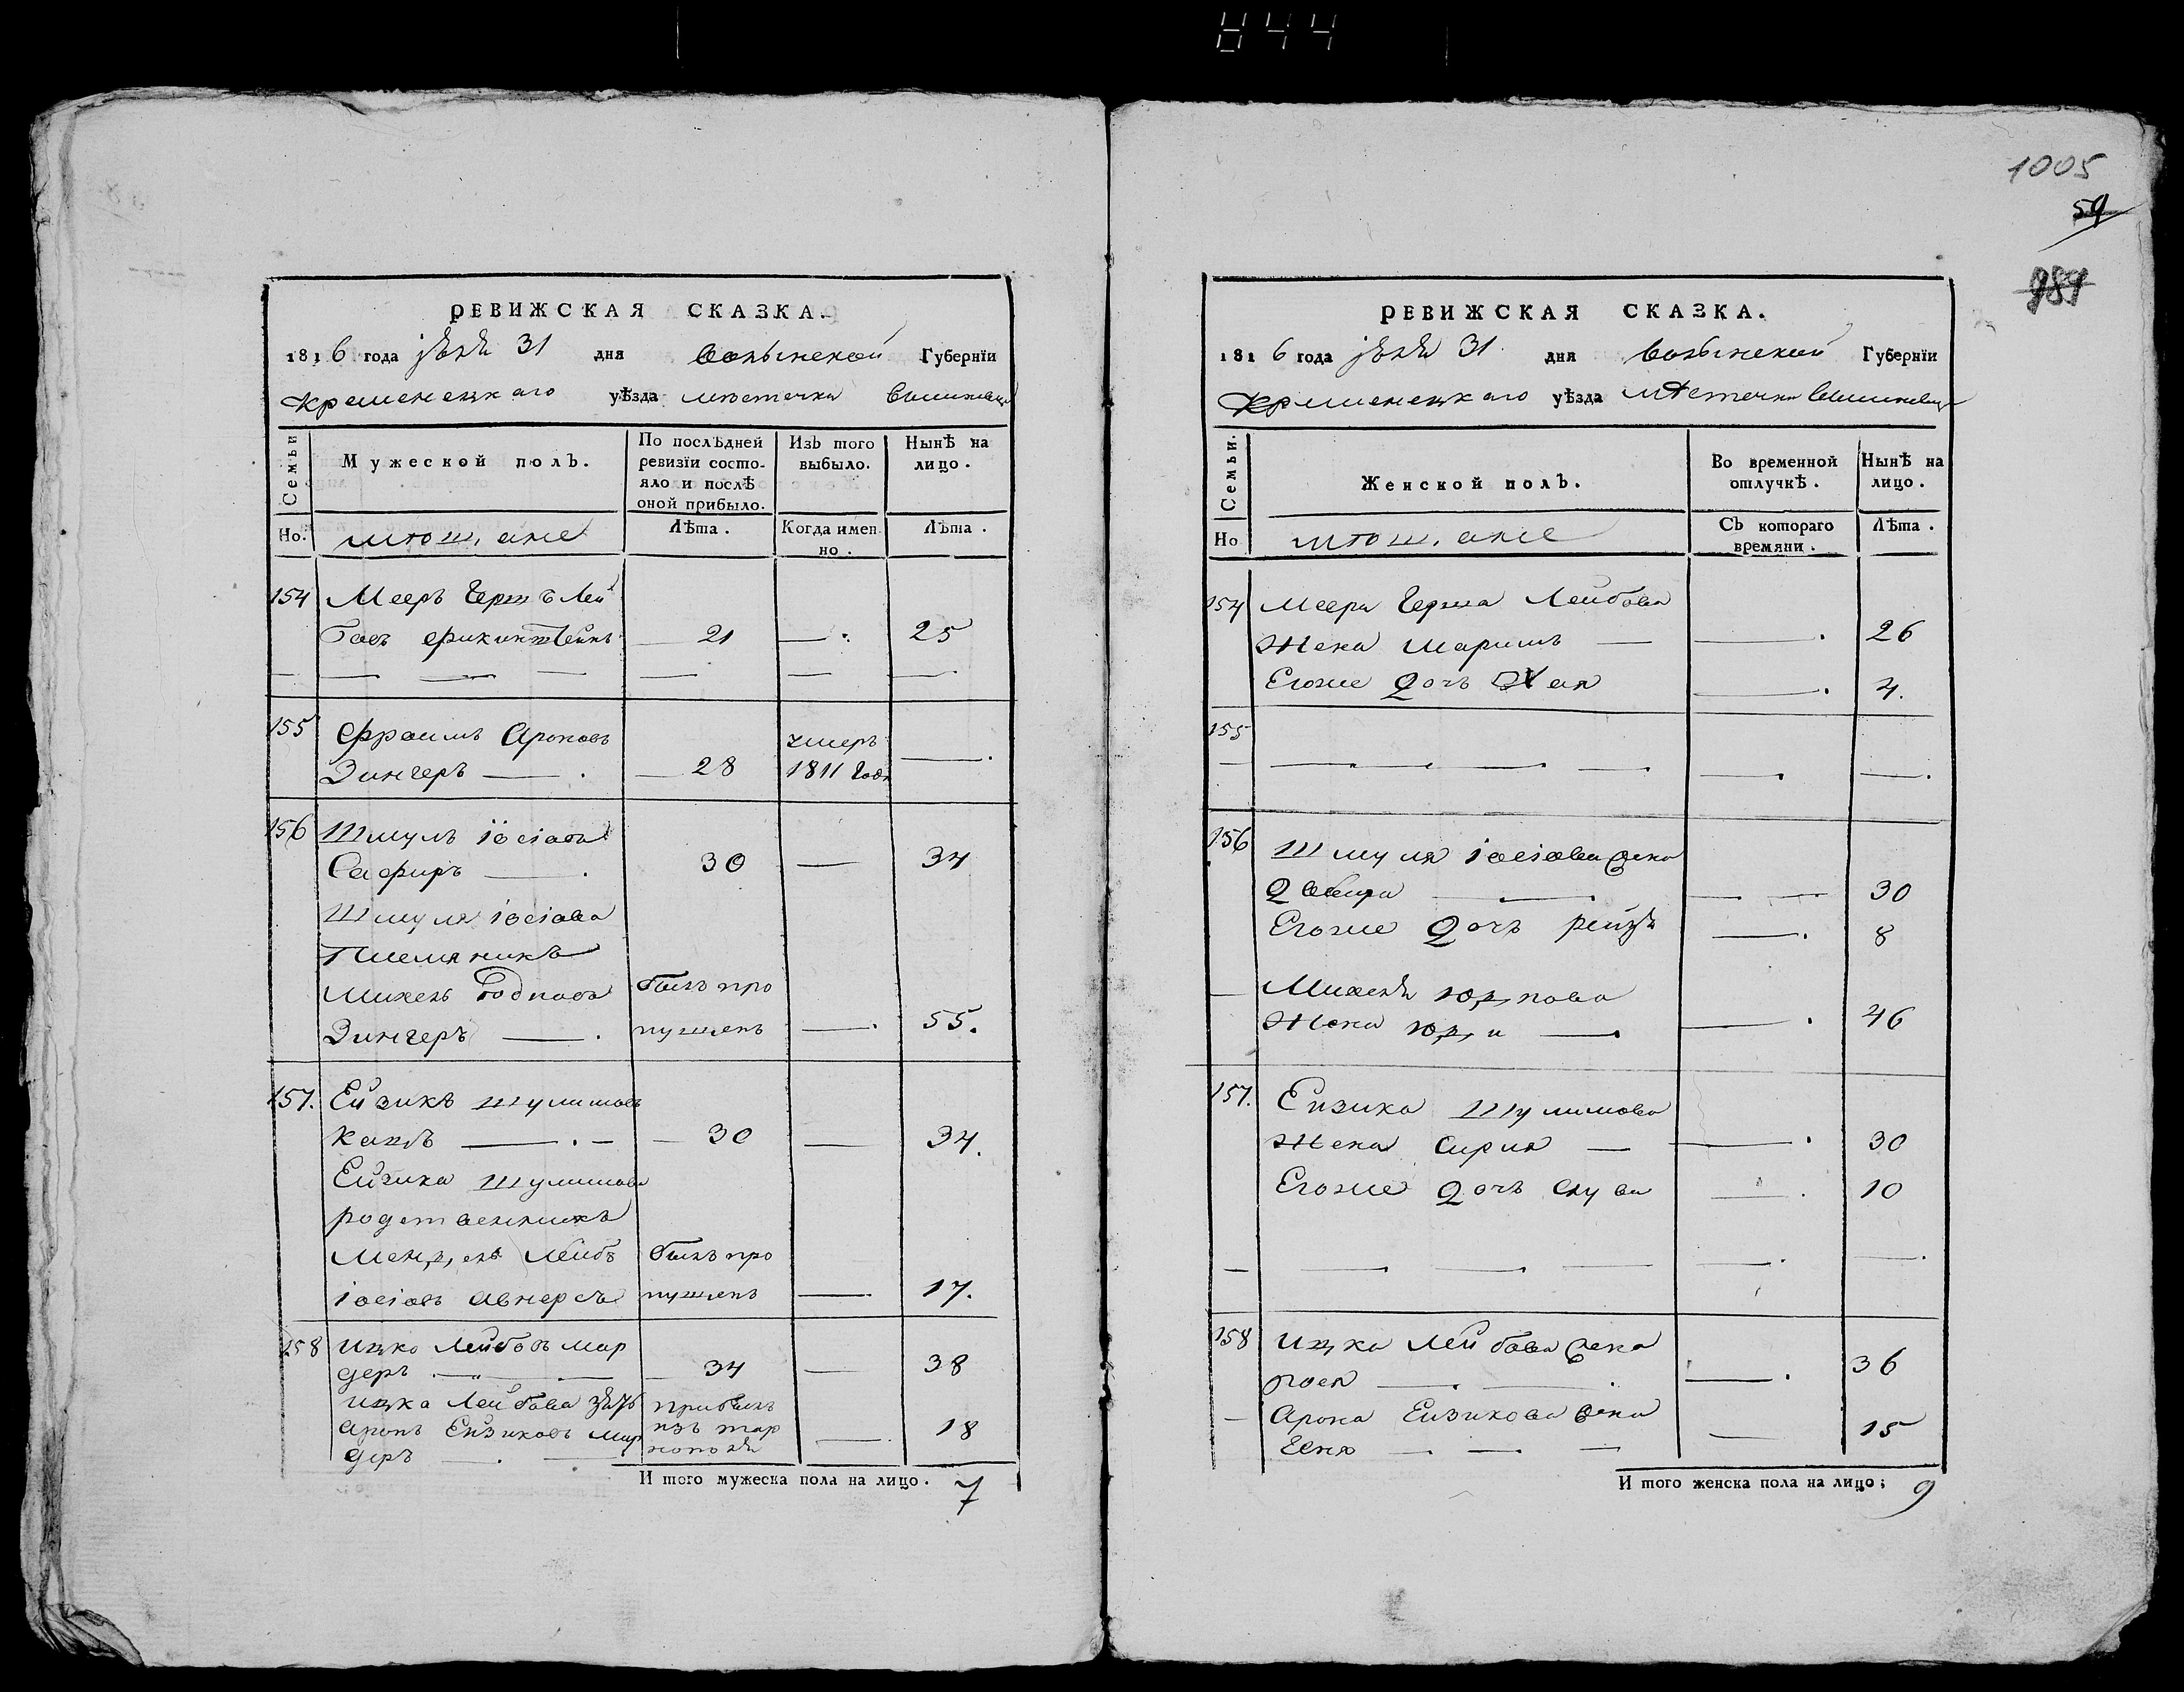 844
РЕВИЖСКАЯ СКАЗКА.
1816 года іюля 31 дня Волынской Губернїи
Кременецкаго уѣзда мѣстечка Вишневца
Семьи
Мужеской полъ.
По послѣдней ревизїи состо-
яло и послѣ
оной прибыло.
Изъ того выбыло.
Нынѣ на лицо.
Но. мющане
Лѣта.
Когда имен
но.
Лѣта.
154 Мееръ Гершъ Лей
бовъ Финкинштейнъ 21 — 25
155 Фроимъ Ароновъ
Зингеръ — 28 умеръ 1811 Года —
156 Шмуль Іосіовъ
Сафиръ — 30 — 34
Шмуля Іосіова
Племяникъ
Михель Юдковъ былъ про
Зингеръ — пущенъ — 55.
157. Ейзикъ Шулимовъ
Кацъ — 30 — 34.
Ейзика Шулимова
родственникъ
Мендель Лейбъ былъ про
Іосіовъ Авнерсъ пущенъ — 17.
158 Ицко Лейбовъ Мар
деръ — 34 — 38
Ицка Лейбова зять прибылъ
Аронъ Ейзиковъ Мар изъ Тар
деръ — нополя — 18
И того мужеска пола на лицо. 7
1005
59
989
РЕВИЖСКАЯ СКАЗКА.
1816 года іюля 31 дня Волынской Губернїи
Кременецкаго уѣзда мѣстечка Вишневца
Семьи.
Женской полъ.
Во временной
отлучкѣ.
Нынѣ на
лицо.
Но мющане
Съ котораго
времяни.
Лѣта.
154 Меера Герша Лейбова
Жена Маримъ — 26
Егоже Дочь Хая — 4.
155 —
156 Шмуля Іосіова жена
Двейра — 30
Егоже Дочь Рейзя — 8
— Михеля Юдкова
Жена Юди — 46
157. Ейзика Шулимова
Жена Сирля — 30
Егоже Дочь Слува — 10
158 Ицка Лейбова жена
Рося — 36
— Арона Ейзикова жена
Есня — 15
И того женска пола на лицо; 9